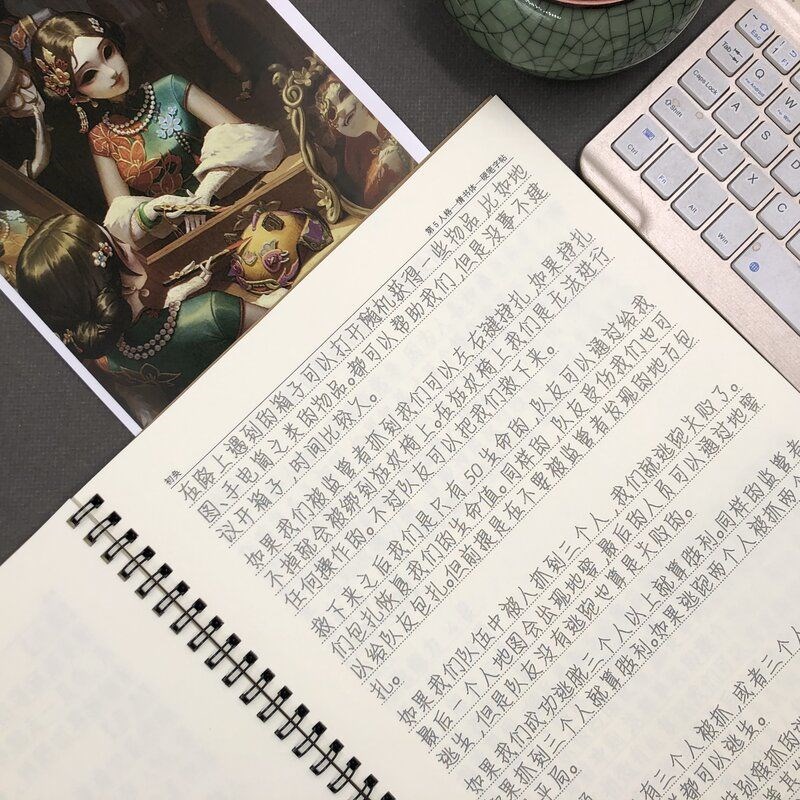 第5人格—情书体—硬笔字帖
初爽
在路上遇到的箱子可以打开随机获得一些物品,比如地
图、手电筒之类的物品。都可以帮助我们,但是没事不建
议开箱子,时间比较久。
如果我们被监管者抓到我们可以左右键挣扎,如果挣扎
不掉就会被绑到狂欢椅上。在狂欢椅上我们是无法进行
任何操作的。不过队友可以把我们救下来。
救下来之后我们是只有50生命的,队友可以通过给我
们包扎恢复我们的生命值。同样的,队友受伤我们也可
以给队友包扎。但前提是在不要被监管者发现的地方包
扎。
如果我们队伍中被人抓到三个人,我们就逃跑失败了。
最后一个人地图会出现地窖,最后的人员可以通过地窖
逃生,但是队友没有逃跑也算是失败的。
如果我们成功逃脱三个人以上就算胜利。同样的监管者
抓到三个人就算胜利。如果逃跑两个人被抓两个
平局。
有三个人被抓,或者三个人
都可以逃生。
Esc
Tab
Q
W
Caps Lock
A
S
D
Shift
Z
X
C
Ctrl
Fn
Alt
Win